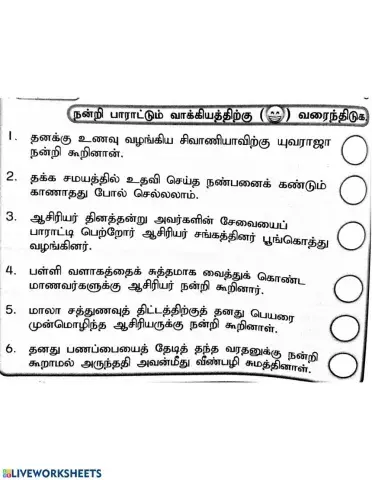 நன்றி பாராட்டும் வாக்கியத்திற்கு ( ) வரைந்திடுக.
1. தனக்கு உணவு வழங்கிய சிவானியாவிற்கு யுவராஜா
நன்றி கூறினான்.
2. தக்க சமயத்தில் உதவி செய்த நண்பனைக் கண்டும்
காணாதது போல் செல்லலாம்.
3. ஆசிரியர் தினத்தன்று அவர்களின் சேவையைப்
பாராட்டி பெற்றோர் ஆசிரியர் சங்கத்தினர் பூங்கொத்து
வழங்கினர்.
4. பள்ளி வளாகத்தைக் சுத்தமாக வைத்துக் கொண்ட
மாணவர்களுக்கு ஆசிரியர் நன்றி கூறினார்.
5. மாலா சத்துணவுத் திட்டத்திற்குத் தனது பெயரை
முன்மொழிந்த ஆசிரியருக்கு நன்றி கூறினாள்.
6. தனது பணப்பையைத் தேடித் தந்த வரதனுக்கு நன்றி
கூறாமல் அருந்ததி அவன்மீது வீண்பழி சுமத்தினாள்.
LIVEWORKSHEETS